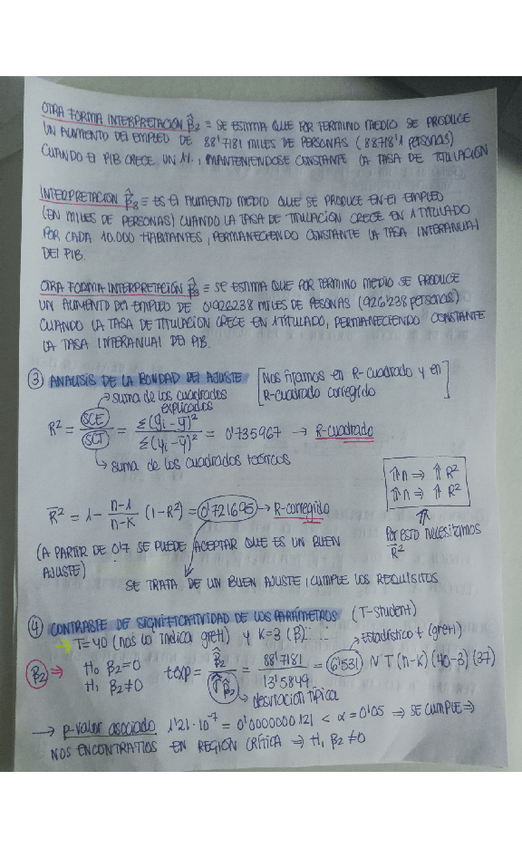 OTRA FORMA INTERPRETACIÓN β̂2 = SE ESTIMA QUE POR TERMINO MEDIO SE PRODUCE
UN AUMENTO DEL EMPLEO DE 88'7181 MILES DE PERSONAS (88718'1 personas)
CUANDO EL PIB CRECE UN 1%, MANTENIENDOSE CONSTANTE LA TASA DE TITULACIÓN
INTERPRETACIÓN β̂3 = ES EL AUMENTO MEDIO QUE SE PRODUCE EN EL EMPLEO
(EN MILES DE PERSONAS) CUANDO LA TASA DE TITULACIÓN CRECE EN 1 TITULADO
POR CADA 10.000 HABITANTES, PERMANECIENDO CONSTANTE LA TASA INTERANUAL
DEL PIB.
OTRA FORMA INTERPRETACIÓN β̂3 = SE ESTIMA QUE POR TERMINO MEDIO SE PRODUCE
UN AUMENTO DEL EMPLEO DE 0'926238 MILES DE PESONAS (926'238 personas)
CUANDO LA TASA DE TITULACIÓN CRECE EN 1 TITULADO, PERMANECIENDO CONSTANTE
LA TASA INTERANUAL DEL PIB.
③ ANALISIS DE LA BONDAD DEL AJUSTE [Nos fijamos en R-cuadrado y en
R-cuadrado corregido]
→ suma de los cuadrados
explicados
R² = SCE/SCT = Σ(ŷi - ȳ)²/Σ(yi - ȳ)² = 0'735967 → R-cuadrado
→ suma de los cuadrados teóricos
⇑n ⇒ ⇑ R²
⇑n ⇒ ⇑ R²
R̄² = 1 - n-1/n-k (1-R²) = 0'721695 → R-corregido
Por esto necesitamos
R̄²
(A PARTIR DE 0'7 SE PUEDE ACEPTAR QUE ES UN BUEN
AJUSTE)
SE TRATA DE UN BUEN AJUSTE, CUMPLE LOS REQUISITOS
④ CONTRASTE DE SIGNIFICATIVIDAD DE LOS PARÁMETROS (T-Student)
→ T=40 (nos lo indica gretl) y K=3 (β)
→ Estadístico t (gretl)
β2 ⇒ H0 β2=0
H1 β2≠0
texp = β̂2/σ̂β̂2 = 88'7181/13'5849 = 6'531 N T (n-k) (40-3) (37)
→ desviación típica
→ p-valor asociado 1'21·10⁻⁷ = 0'0000000121 < α = 0'05 ⇒ SE CUMPLE ⇒
NOS ENCONTRAMOS EN REGIÓN CRÍTICA ⇒ H1 β2≠0